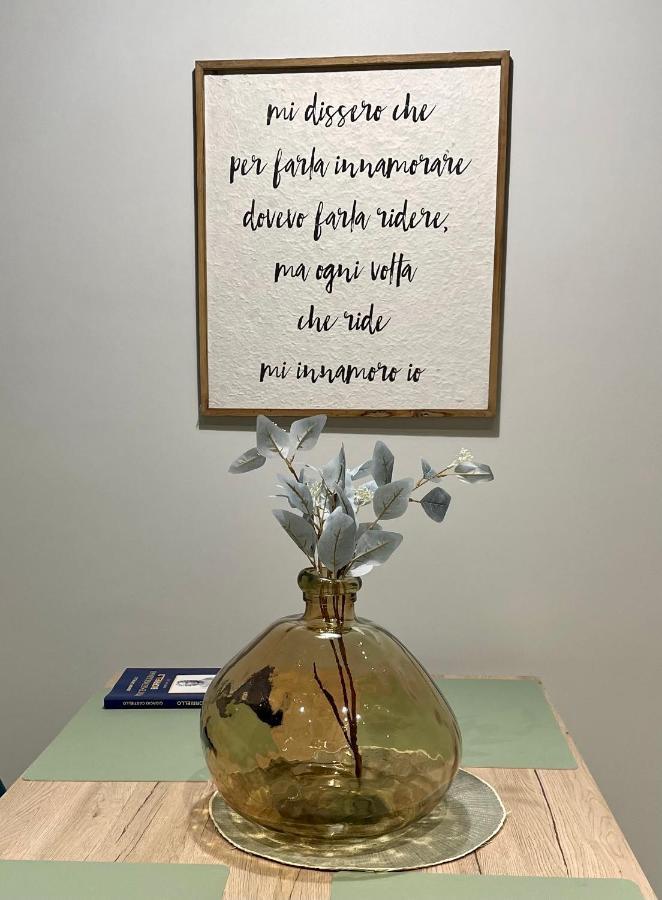 mi dissero che
per farla innamorare
dovevo farla ridere,
ma ogni volta
che ride
mi innamoro io